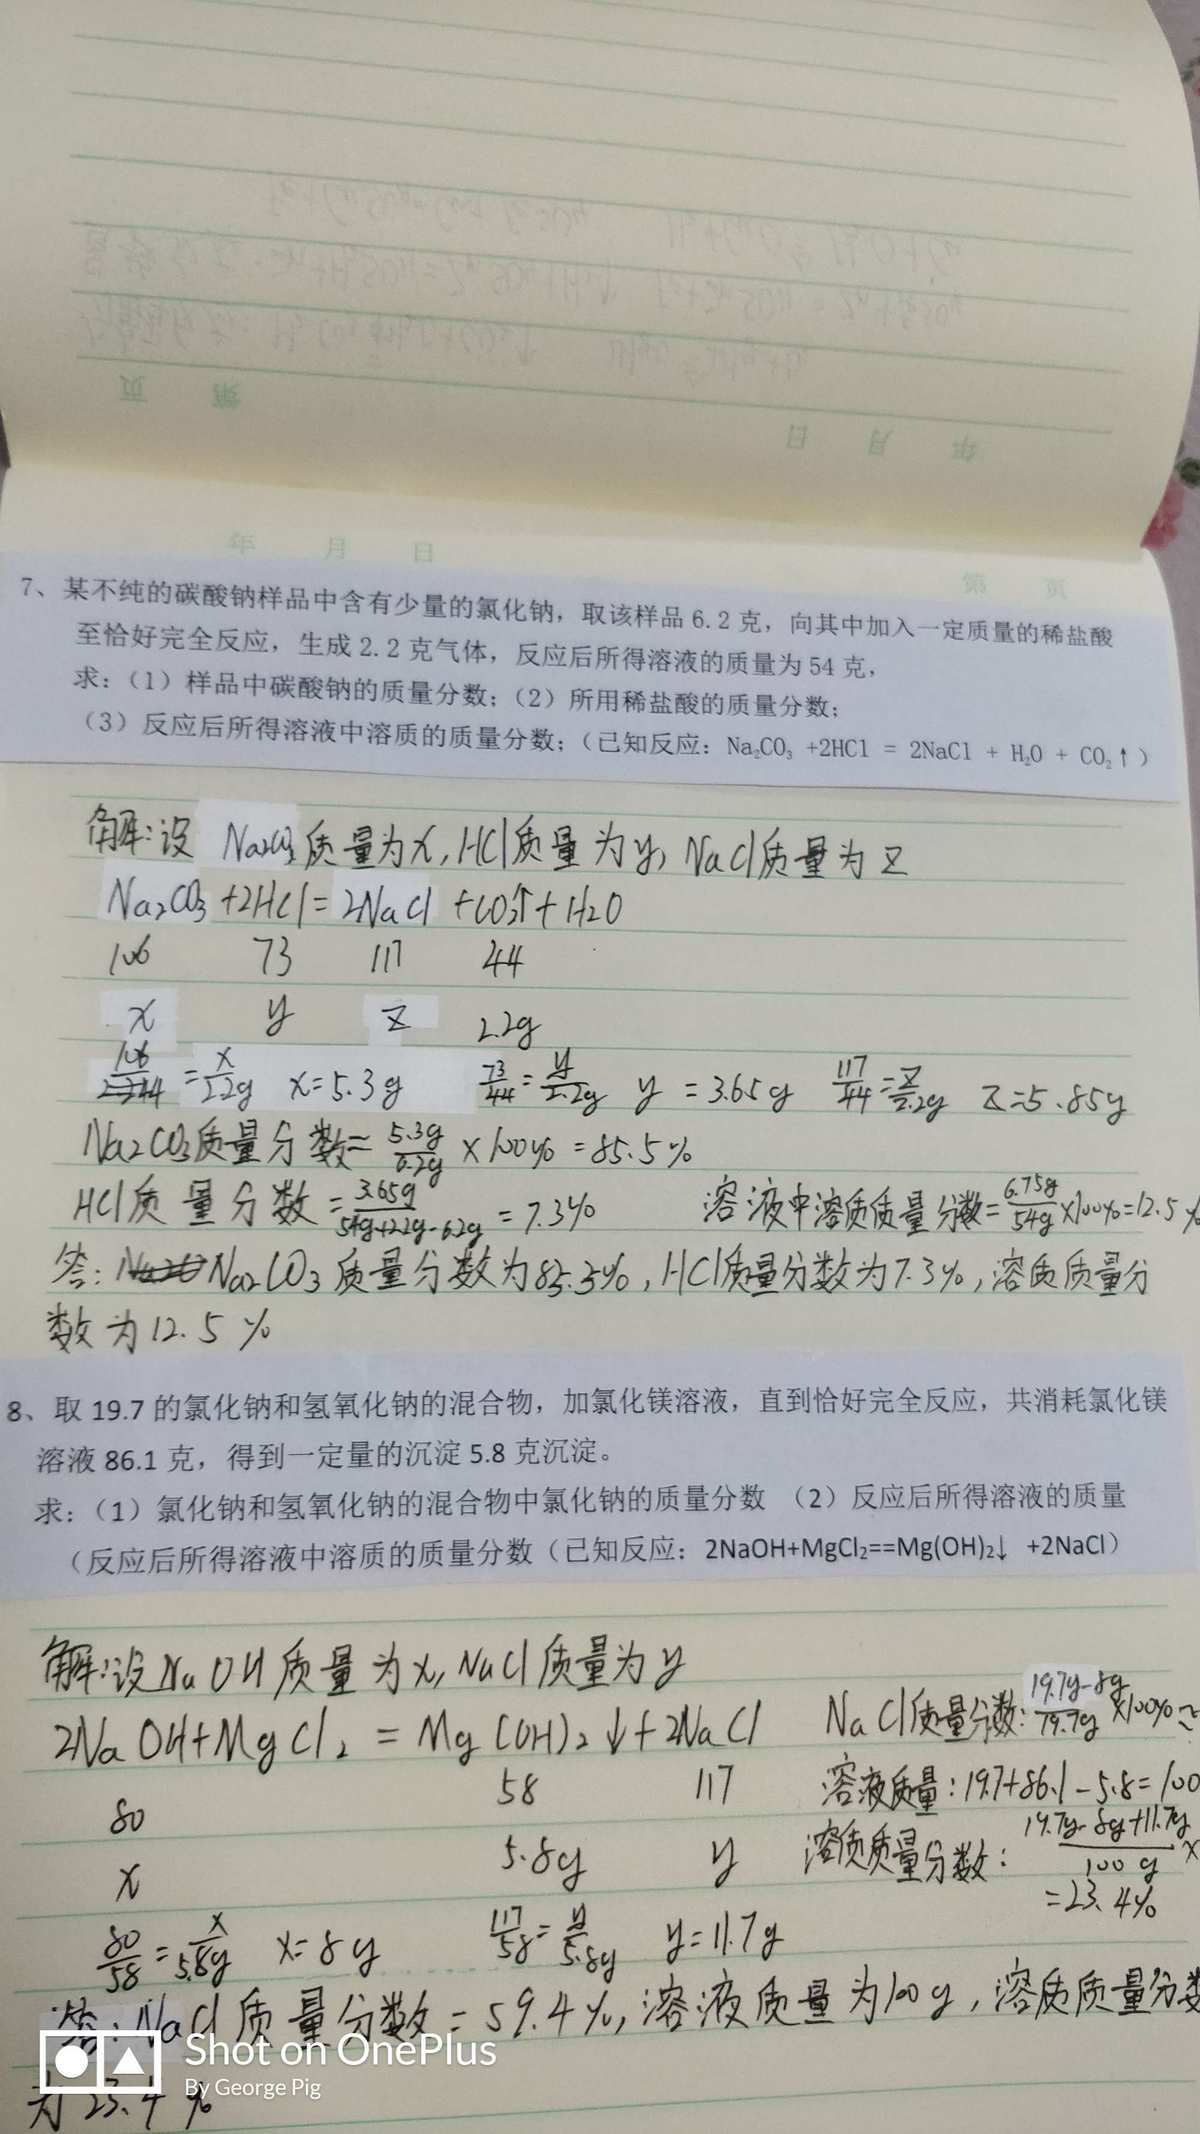 年 月 日
第 页
7、某不纯的碳酸钠样品中含有少量的氯化钠，取该样品6.2克，向其中加入一定质量的稀盐酸
至恰好完全反应，生成2.2克气体，反应后所得溶液的质量为54克，
求：（1）样品中碳酸钠的质量分数；（2）所用稀盐酸的质量分数；
（3）反应后所得溶液中溶质的质量分数；（已知反应：Na₂CO₃ +2HCl = 2NaCl + H₂O + CO₂↑）
解：设 Na₂CO₃质量为x，HCl质量为y，NaCl质量为z
Na₂CO₃+2HCl=2NaCl+CO₂↑+H₂O
106 73 117 44
x y z 2.2g
106/44=x/2.2g x=5.3g 73/44=y/2.2g y=3.65g 117/44=z/2.2g z=5.85g
Na₂CO₃质量分数=5.3g/6.2g×100%=85.5%
HCl质量分数=3.65g/54g+2.2g-6.2g=7.3% 溶液中溶质质量分数=6.75g/54g×100%=12.5%
答：Na₂CO₃质量分数为85.5%，HCl质量分数为7.3%，溶质质量分
数为12.5%
8、取19.7的氯化钠和氢氧化钠的混合物，加氯化镁溶液，直到恰好完全反应，共消耗氯化镁
溶液86.1克，得到一定量的沉淀5.8克沉淀。
求：（1）氯化钠和氢氧化钠的混合物中氯化钠的质量分数 （2）反应后所得溶液的质量
（反应后所得溶液中溶质的质量分数（已知反应：2NaOH+MgCl₂==Mg(OH)₂↓ +2NaCl）
解：设NaOH质量为x，NaCl质量为y
2NaOH+MgCl₂=Mg(OH)₂↓+2NaCl
80 58 117
x 5.8g y
80/58=x/5.8g x=8g 117/58=y/5.8g y=11.7g
NaCl质量分数：19.7g-8g/19.7g×100%≈
溶液质量：19.7+86.1-5.8=100
溶质质量分数：19.7g-8g+11.7g/100g×
=23.4%
答：NaCl质量分数=59.4%，溶液质量为100g，溶质质量分数
为23.4%
Shot on OnePlus
By George Pig